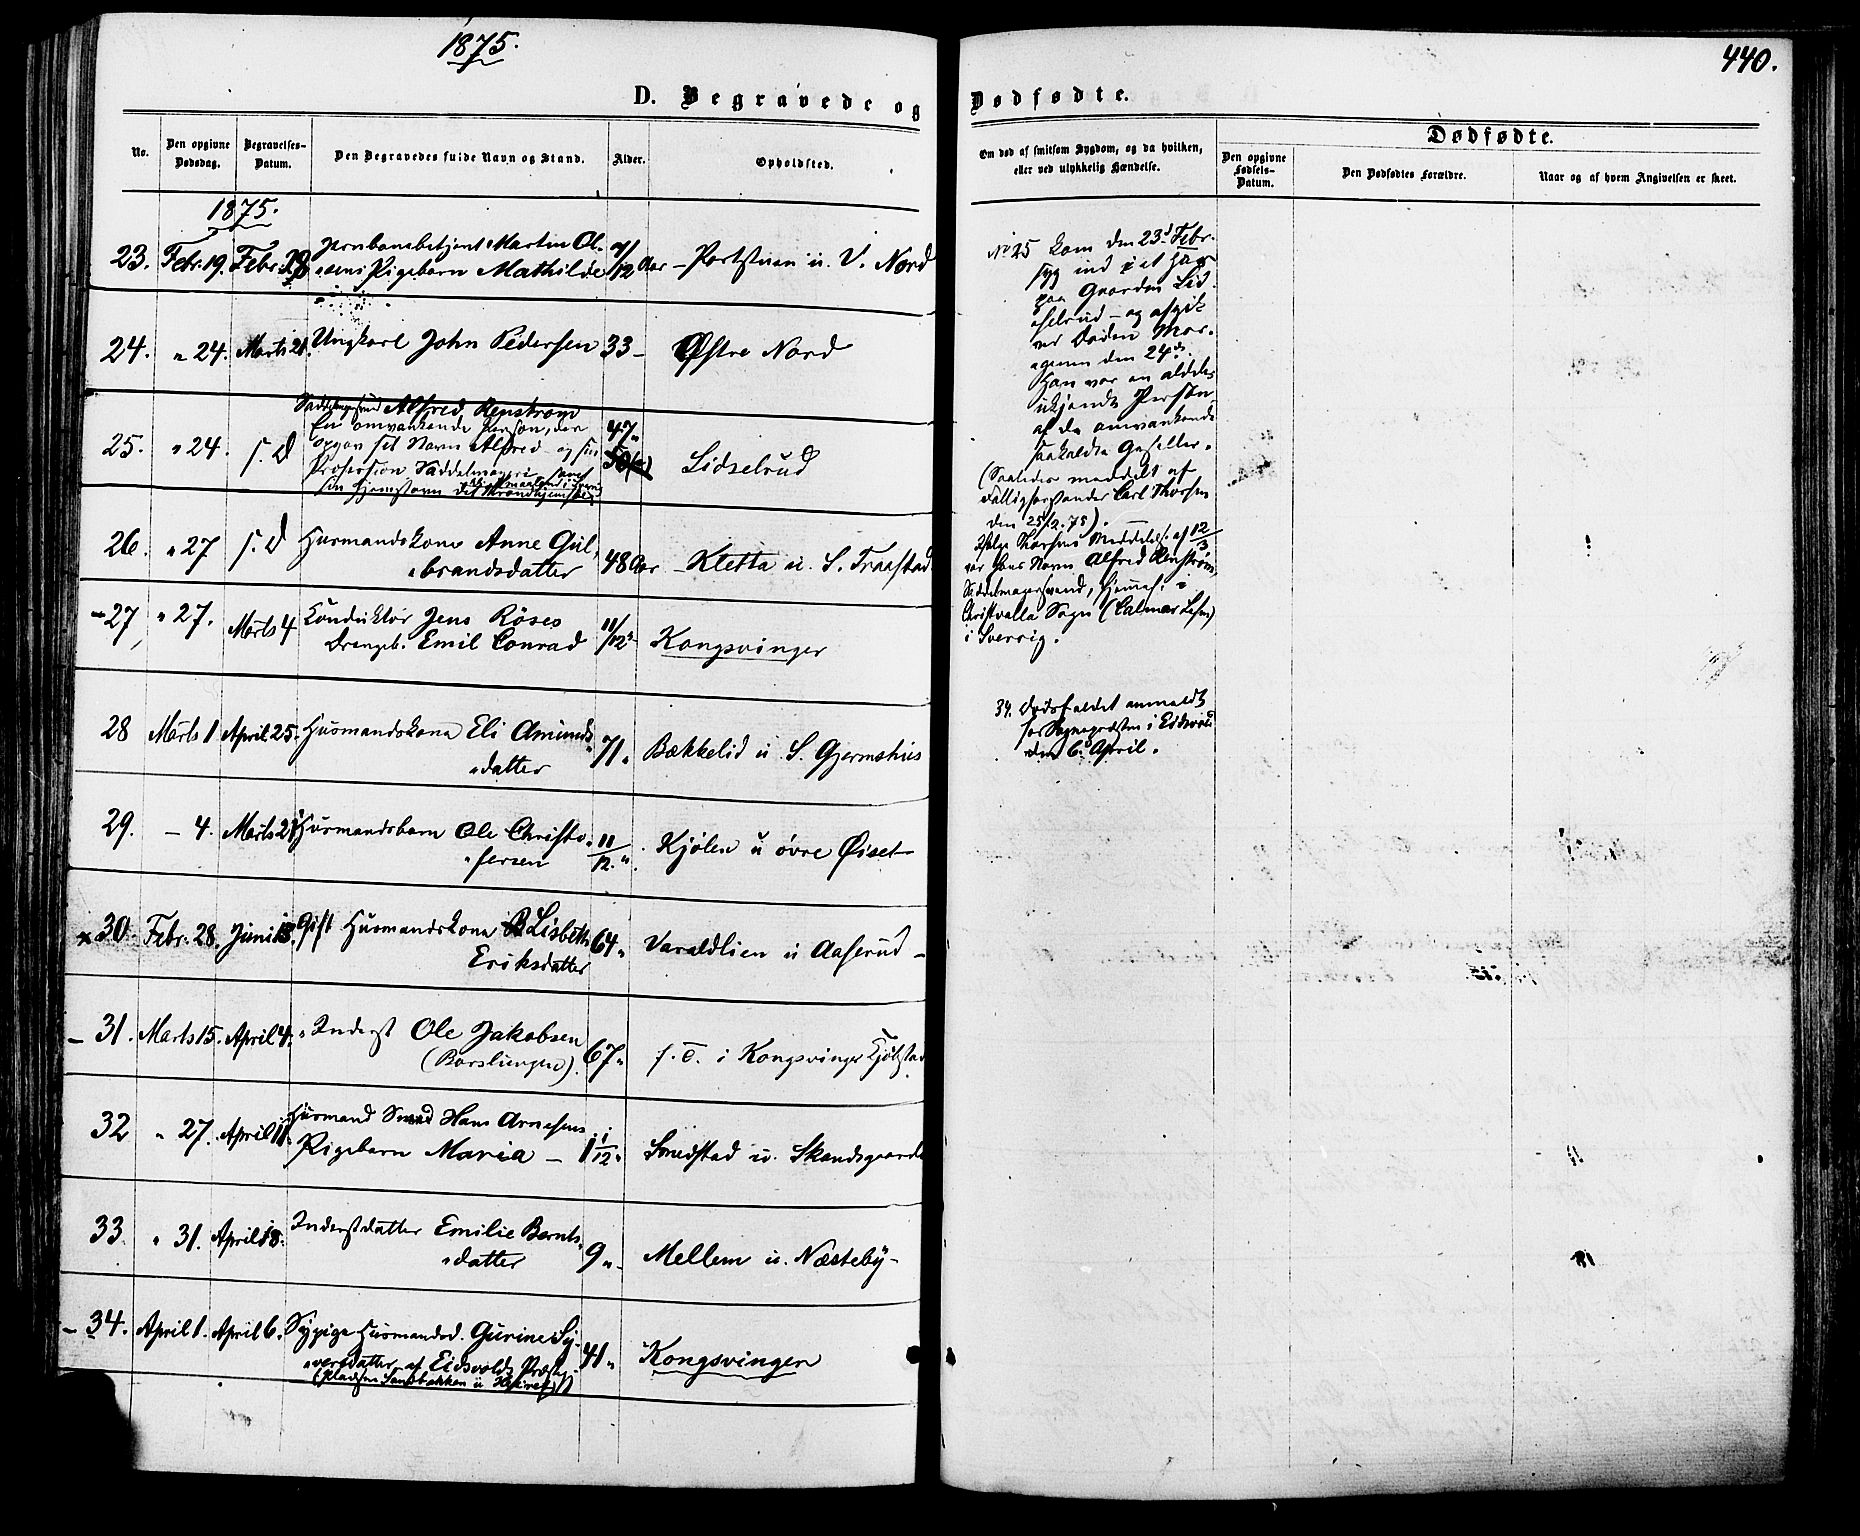 1875.
440.
D. Begravede og Dødfødte.
No.
Den opgivne Dødsdag.
Begravelses-Datum.
Den Begravedes fulde Navn og Stand.
Alder.
Opholdsted.
Om død af smitsom Sygdom, og da hvilken,
eller ved ulykkelig Hændelse.
Dødfødte.
Den opgivne Fødsels-Datum.
Den Dødfødtes Forældre.
Naar og af hvem Angivelsen er skeet.
1875.
23. Febr. 19. Febr. Jernbanebetjent Martin Ol-
sens Pigebarn Mathilde 7/12 Aar – Portstuen u. V. Nord
24. " 24. Marts 21. Ungkarl John Pedersen 33 – Østre Nord
Alfred Renstrøm
En omvankende Person, der
25. " 24. s. D opgav sit Navn Alfred og sin 47 " Lidselrud
Profession Saddelmager
sin Hjemstavn
26. " 27 s. D Husmandskone Anne Gul-
brandsdatter 48 Aar – Kletta u. S. Traastad
27 " 27. Marts 4 Konduktør Jens Röses
Drengeb. Emil Conrad 11/12 " Kongsvinger
28 Marts 1 April 25. Husmandskona Eli Amunds-
datter 71 " Bækkelid u S. Gjermshus
29. – 4. Marts 21 Husmandsbarn Ole Christo-
fersen 11/12 " Kjølen u øvre Øiset
x 30 Febr. 28. Juni 13. Gift Husmandskona Lisbeth
Eriksdatter 64 " Varaldlien u Aaserud –
– 31. Marts 15. April 4. Inderst Ole Jakobsen
(Borslungen) 67 " f. T. i Kongsvinger
32 " 27. April 11. Husmand Smed Hans Arnesens
Pigebarn Maria – 1 1/12 " Smedstad u. Skandsgaarde
33. " 31. April 18. Inderstdatter Emilie Bernts-
datter 9 " Mellem u. Næsteby –
– 34. April 1. April 6. Sypige Husmandsd. Gurine Sy-
versdatter af Eidsvolds Præstgj.
(Pladsen Sandbakken u) 41 " Kongsvinger
No 25 kom den 23d Febr.
syg ind i et Hus
paa Gaarden Lid-
selrud – og afgik
ved Døden Mor-
genen den 24de.
Han var en aldeles
ukjendt Person
af de omvankende
saakaldte Gaseller.
(Saaledes meddelt af
Fattigforstander Carl Thorsen
den 25/2. 75).
Ifølge Thorsens Meddelels. af 12/3
var hans Navn Alfred Renstrøm,
Saddelmagersvend, Hjemst. i
Christvalla Sogn (Calmar Lehn)
i Sverrig.
34. Dødsfaldet anmeldt
for Sognepresten i Eidsvold
den 6. April.